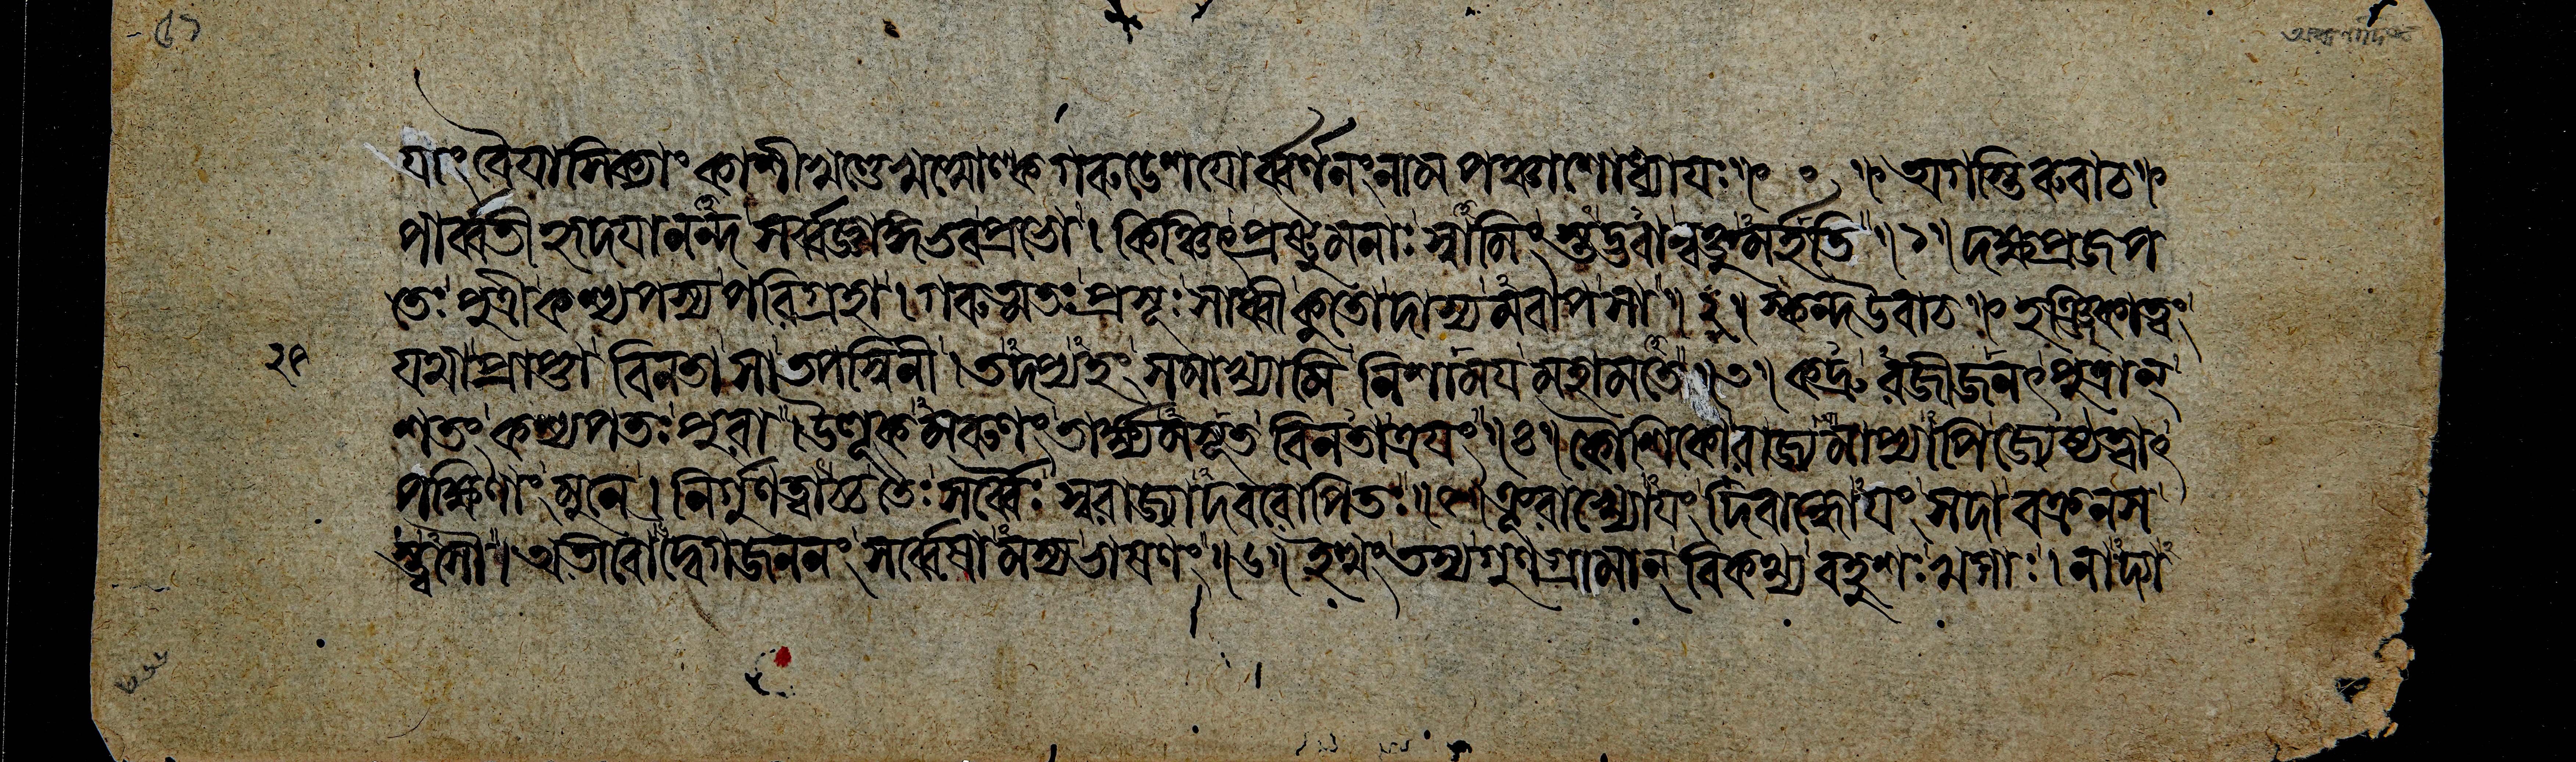 যাং বৈযাসিক্যাং কাশীখণ্ডে খখোল্ক গরুডেশযোর্ব্বর্ণনং নাম পঞ্চাশোধ্যাযঃ ॥ ০ ॥ অগস্তিরুবাচ ॥
পার্ব্বতী হৃদযানন্দ সর্ব্বজ্ঞাঙ্গভব প্রভো । কিঞ্চিৎ প্রষ্টুমনাঃ স্বামিং স্তদ্ভবান্বক্তুমর্হতি ॥ ১ ॥ দক্ষপ্রজাপ
তেঃ পুত্রী কশ্যপস্য পরিগ্রহা । গরুত্মতঃ প্রসূঃ সাধ্বী কুতো দাস্যমবাপ সা ॥ ২ ॥ স্কন্দ উবাচ ॥ হঞ্জিকাত্বং
যথা প্রাপ্তা বিনতা সা তপস্বিনী । তদপ্যহং সমাখ্যামি নিশাময মহামতে ॥ ৩ ॥ কদ্রু রজীজনৎ পুত্রান্
শতং কশ্যপতঃ পুরা । উলূকমরুণং তার্ক্ষ্যমসূত বিনতা ত্রযং ॥ ৪ ॥ কৌশিকো রাজ্যমাপ্যাপি জ্যেষ্ঠত্বাৎ
পক্ষিণাং মুনে । নির্গুণত্বাচ্চ তৈঃ সর্ব্বৈঃ স্বরাজ্যাদবরোপিতঃ ॥ ৫ ॥ ক্রূরাক্ষোযং দিবান্ধোযং সদা বক্রনখ
স্ত্বসৌ । অতীবোদ্বেগজননং সর্ব্বেষামস্য ভাষণং ॥ ৬ ॥ ইত্থং তস্য গুণগ্রামান্ বিকথ্য বহুশঃ খগাঃ । নাদ্যা